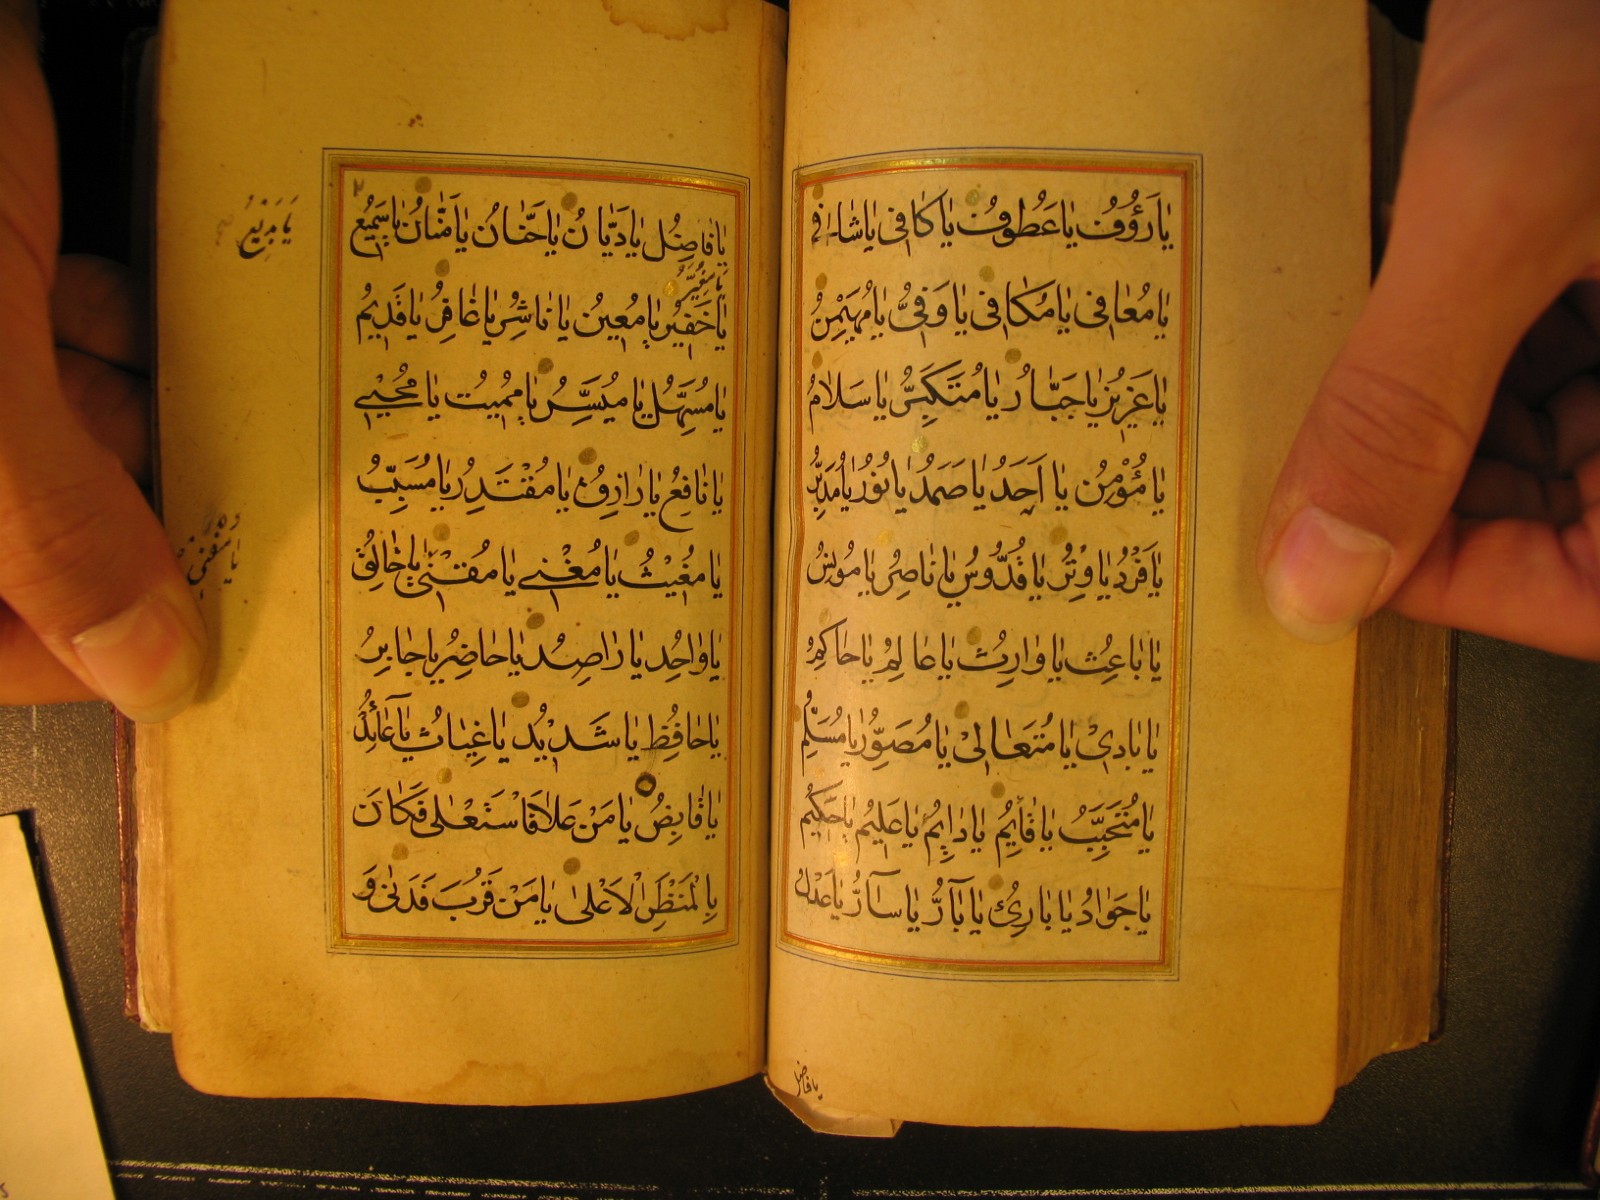 يَا رَؤُفُ يَا عَطُوفُ يَا كَافِى يَا شَافِى
يَا مُعَافِى يَا مُكَافِى يَا وَفِىُّ يَا مُهَيْمِنُ
يَا عَزِيزُ يَا جَبَّارُ يَا مُتَكَبِّرُ يَا سَلَامُ
يَا مُؤْمِنُ يَا اَحَدُ يَا صَمَدُ يَا نُورُ يَا مُدَبِّرُ
يَا فَرْدُ يَا وِتْرُ يَا قُدُّوسُ يَا نَاصِرُ يَا مُونِسُ
يَا بَاعِثُ يَا وَارِثُ يَا عَالِمُ يَا حَاكِمُ
يَا بَادِىْ يَا مُتَعَالِىْ يَا مُصَوِّرُ يَا مُسَلِّمُ
يَا مُتَحَبِّبُ يَا قَائِمُ يَا دَائِمُ يَا عَلِيمُ يَا حَكِيمُ
يَا جَوَادُ يَا بَارِئُ يَا بَآرُّ يَا سَآرُّ يَا عَدْلُ
يا فاضل
يَا فَاصِلُ يَا دَيَّانُ يَا حَنَّانُ يَا مَنَّانُ يَا سَمِيعُ
يَا بَدِيْعُ
يَا خَفِيرُ يَا مُعِينُ يَا نَاشِرُ يَا غَافِرُ يَا قَدِيمُ
يَا مُسَهِّلُ يَا مُيَسِّرُ يَا مُمِيتُ يَا مُحْيِي
يَا نَافِعُ يَا رَازِقُ يَا مُقْتَدِرُ يَا مُسَبِّبُ
يَا مُغِيْثُ يَا مُغْنِي يَا مُقْنِي يَا خَالِقُ
يَا وَاحِدُ يَا رَاصِدُ يَا حَاضِرُ يَا جَابِرُ
يَا حَافِظُ يَا شَدِيدُ يَا غِيَاثُ يَا عَآئِدُ
يَا قَابِضُ يَا مَنْ عَلَا فَاسْتَعْلَى فَكَانَ
بِالْمَنْظَرِ الْاَعْلَى يَا مَنْ قَرُبَ فَدَنٰى وَ